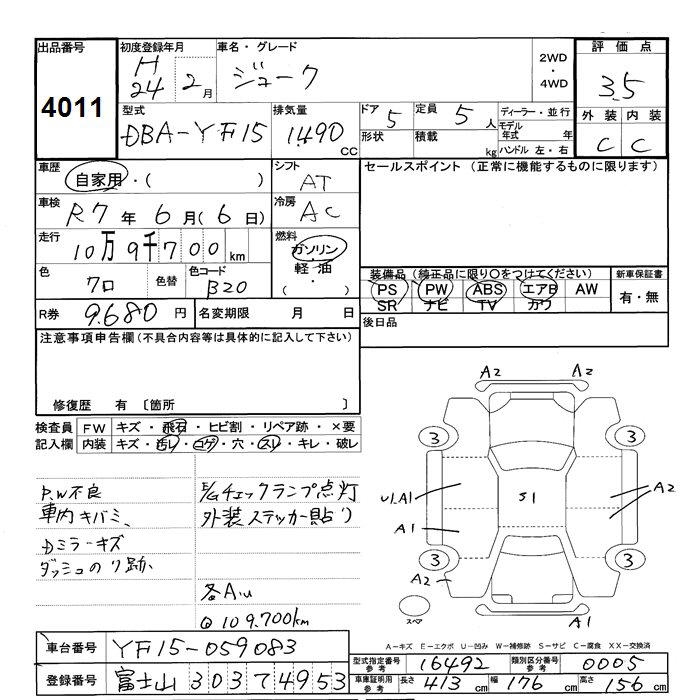 出品番号
4011
初度登録年月
H
24 2月
車名・グレード
ジューク
2WD
・
4WD
評価点
3.5
型式
DBA-YF15
排気量
1490
cc
ドア
5
定員
5人
形状
積載
kg
ディーラー・並行
モデル
年式 年
ハンドル 左・右
外装 内装
C C
車歴
自家用・( )
シフト
AT
セールスポイント (正常に機能するものに限ります)
車検
R7年6月(6日)
冷房
AC
走行
10万9千700km
燃料
ガソリン
軽油
・( )
色
クロ
色替
色コード
B20
装備品 (純正品に限り○をつけてください)
PS PW ABS エアB AW
SR ナビ TV カワ
新車保証書
有・無
R券
9.680円
名変期限 月 日
後日品
注意事項申告欄(不具合内容等は具体的に記入して下さい)
修復歴 有 〔箇所 〕
検査員
記入欄
FW キズ・飛石・ヒビ割・リペア跡・×要
内装 キズ・汚レ・コゲ・穴・スレ・キレ・破レ
P.W不良
車内キバミ、
Dミラーキズ
ダッシュのり跡
E/Gチェックランプ点灯
外装ステッカー貼り
各AU
@109.700km
A2 A2
3 3
U1.A1
S1
A2
A1
3 3
A2
スペア
A1
A-キズ E-エクボ U-凹み W-補修跡 S-サビ C-腐食 XX-交換済
車台番号
YF15-059083
登録番号
富士山 303 て 4953
型式指定番号
参考
16492
類別区分番号
参考
0005
車庫証明用
参考
長さ 413cm 幅 176cm 高さ 156cm